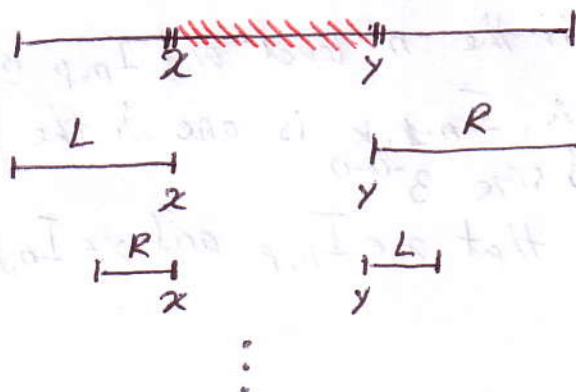 x y
L R
x y
R L
x y
⋮